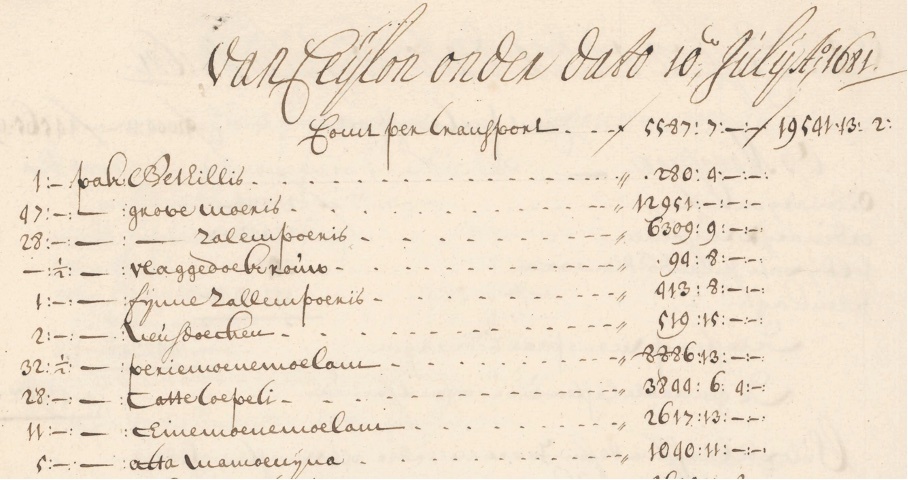 Van Ceijlon onder dato 10en Julij Ao 1681.
Comt per transport . . . ƒ 5587: 7:—:— ƒ 19541:13: 2:
1:— pak: Bethillis . . . . „ 280: 4:—:—
47:—:— : grove moeris . . . . „ 12951:—:—:—
28:—:— : — zalempoeris . . . . „ 6309: 9:—:—
—:½:— : vlaggedoek rouw . . . . „ 94: 8:—:—
1:—:— : fijnne zallempoeris . . . . „ 413: 8:—:—
2:—:— : neusdoecken . . . . „ 519:15:—:—
32:½:— : periemoenemoelam . . . . „ 8886:13:—:—
28:—:— : Catteloepeli . . . . „ 3844: 6: 4:—:
11:—:— : Cinemoenemoelam . . . . „ 2617:13:—:—
5:—:— : alta mamoenyna . . . . „ 1040:11:—:—